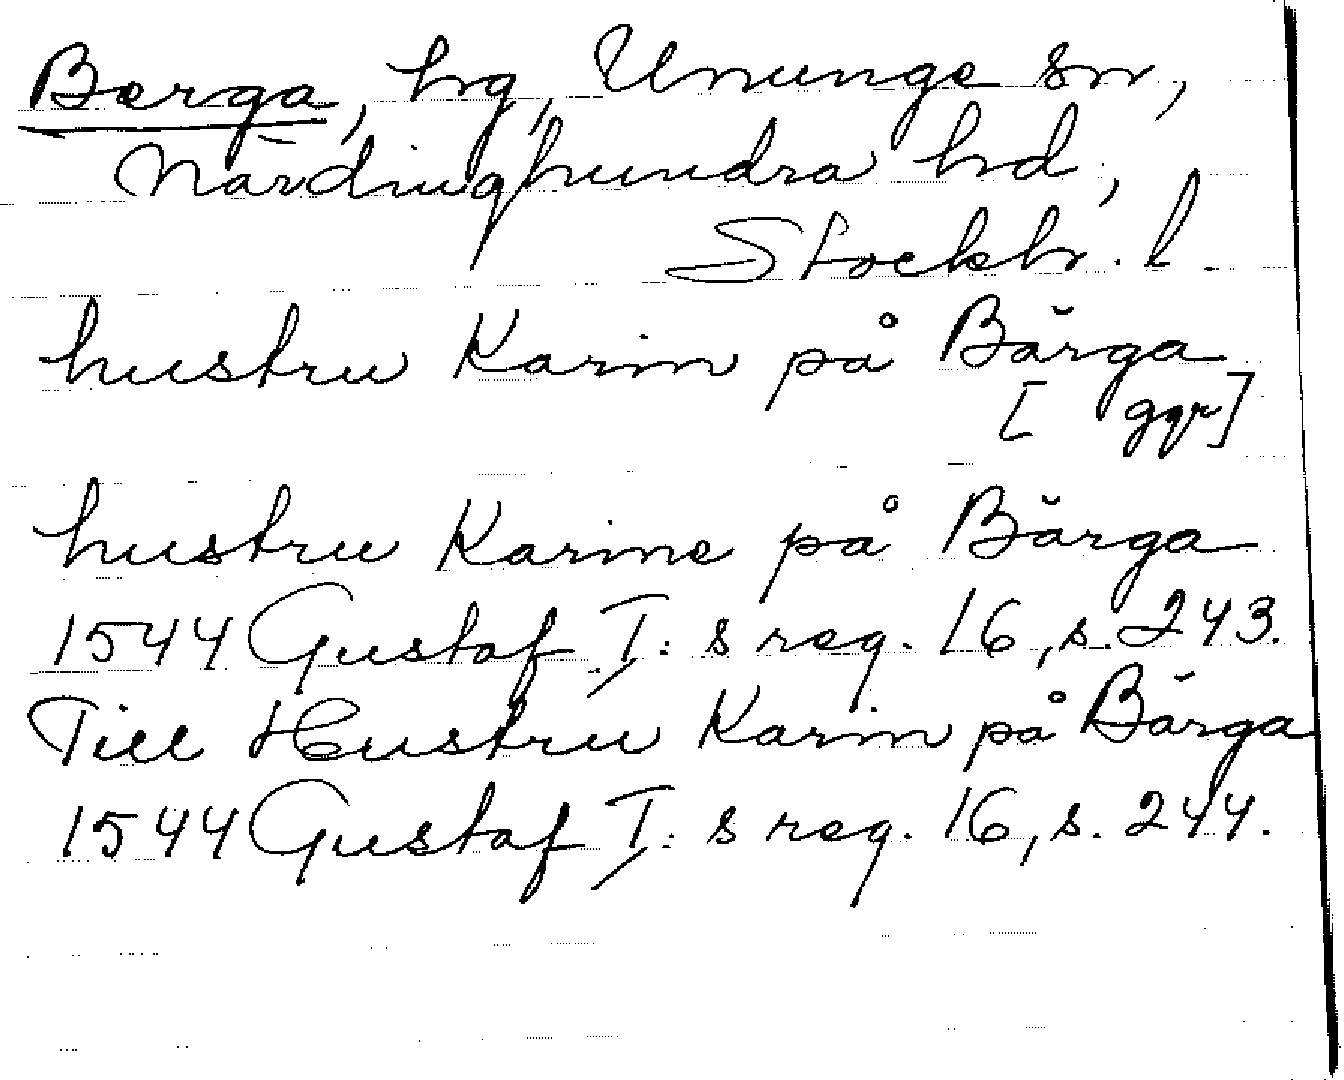 Berga, hg, Ununge sn,
Närdinghundra hd,
Stockh. l.
hustru Karin på Bärga
[ ggr]
hustru Karine på Bärga
1544 Gustaf I: s reg. 16, s. 243.
Till Hustru Karin på Bärga
1544 Gustaf I: s reg. 16, s. 244.